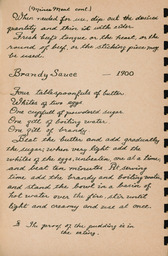 (Mince Meat cont.)
When needed for use, dip out the desired
quantity and thin it with cider.
Fresh beef tongue, or the heart, or the
round of beef, or the sticking piece may
be used.
Brandy Sauce — 1900
Four tablespoonfuls of butter
Whites of two eggs
One cupful of powdered sugar
One gill of boiling water
One gill of brandy
Beat the butter and add gradually
the sugar; when very light add the
whites of the eggs, unbeaten, one at a time,
and beat ten minutes. At serving
time add the brandy and boiling water,
and stand the bowl in a basin of
hot water over the fire stir until
light and creamy and use at once.
The proof of the pudding is in
the eating.